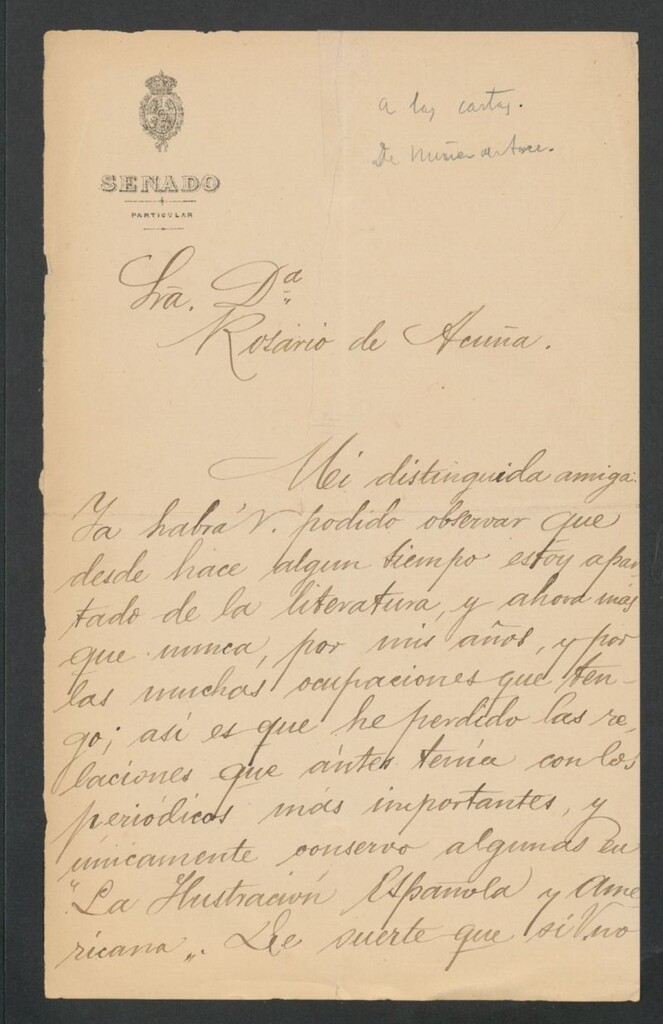 a las cartas.
De Nuñez de Arce.
SENADO
PARTICULAR
Sra. Dª
Rosário de Acuña.
Mi distinguida amiga:
Ya habrá V. podido observar que
desde hace algun tiempo estoy apar-
tado de la literatura, y ahora más
que nunca, por mis años, y por
las muchas ocupaciones que ten-
go; así es que he perdido las re-
laciones que ántes tenía con los
periódicos más importantes, y
únicamente conservo algunas en
"La Ilustración Española y Ame
ricana„. De suerte que si V. no